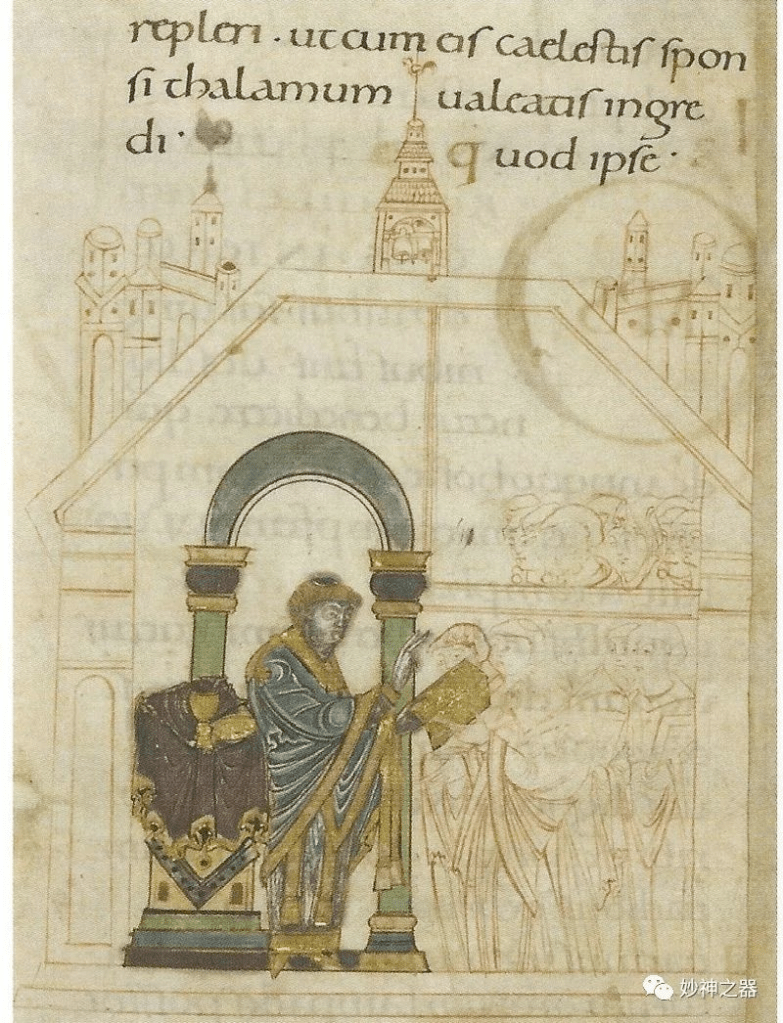 repleri . ut cum eis caelestis spon
si thalamum ualeatis ingre
di .
quod ipse .
妙神之器